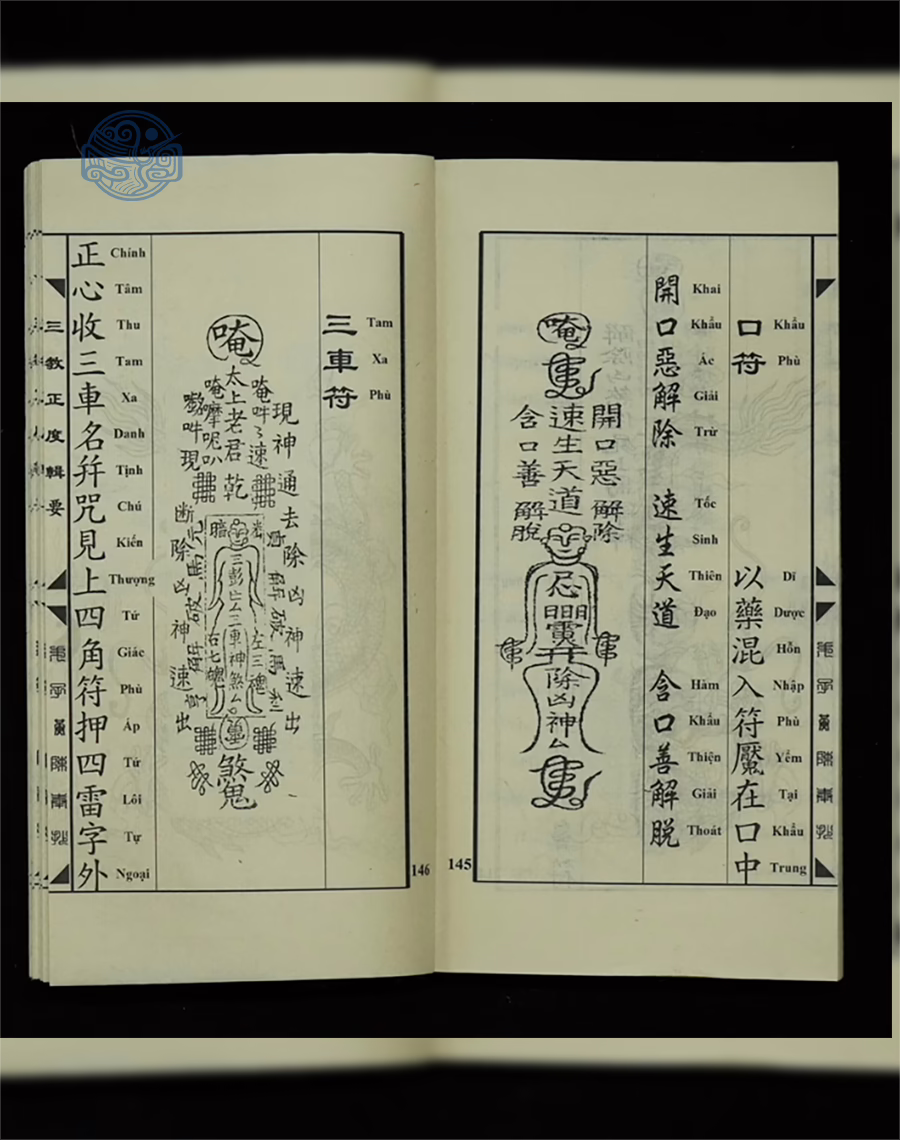 口符
Khẩu
Phù
以藥混入符魘在口中
Dĩ
Dược
Hỗn
Nhập
Phù
Yểm
Tại
Khẩu
Trung
開口惡解除
Khai
Khẩu
Ác
Giải
Trừ
速生天道
Tốc
Sinh
Thiên
Đạo
含口善解脫
Hàm
Khẩu
Thiện
Giải
Thoát
唵
開口惡解除
速生天道
含口善解脫
除凶神厶
145
三車符
Tam
Xa
Phù
唵
現神通去除凶神速出
太上老君
乾
三彭
三車神煞厶
左三魂
右七魄
断除凶神速出
煞鬼
正心收三車名幷咒見上四角符押四雷字外
Chính
Tâm
Thu
Tam
Xa
Danh
Tịnh
Chú
Kiến
Thượng
Tứ
Giác
Phù
Áp
Tứ
Lôi
Tự
Ngoại
三教正度輯要
146